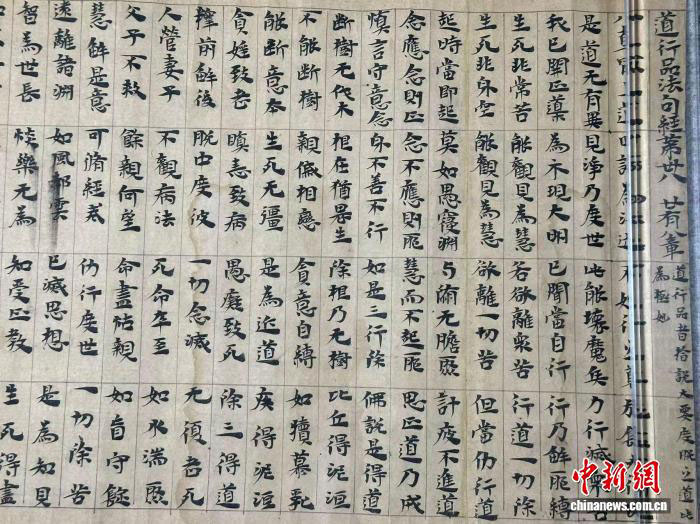 道行品法句經第卅八 廿有八章 道行品者旨說大要度脫之道此為極妙
是道无有異 見淨乃度世 此能壞魔兵 力行滅衆苦
我已開正道 為示現大明 已聞當自行 行乃解耶縛
生死非常苦 能觀見為慧 若欲離衆苦 行道一切除
生死非身空 能觀見為慧 欲離一切苦 但當仂行道
起時當即起 莫如愚覆淵 与術无瞻聚 計疲不進道
念應念則正 念不應則耶 慧而不起耶 思正道乃成
慎言守意念 身不善不行 如是三行除 佛說是得道
斷樹无伐木 根在猶復生 除根乃无樹 比丘得泥洹
不能斷樹 親慼相戀 貪意自縛 如犢慕乳
能斷意本 生死无彊 是為近道 疾得泥洹
貪婬致老 瞋恚致病 愚癡致死 除三得道
釋前解後 脫中度彼 一切念滅 无復老死
人營妻子 不觀病法 死命卒至 如水湍聚
父子不救 餘親何望 命盡怙親 如盲守燈
慧解是意 可脩經戒 仂行度世 一切除苦
遠離諸淵 如風却雲 已滅思想 是為知見
智為世長 惔樂无為 知受正教 生死得盡
中新网
chinanews.com